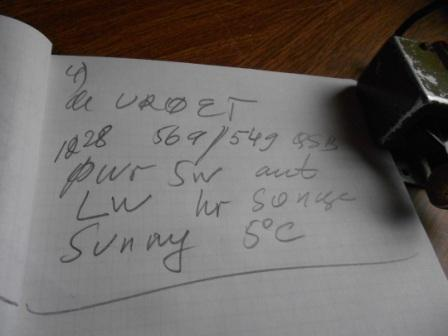 4)
de UR0ET
1028 569/549 QSB
pwr 5w ant
LW hr
Sunny 5°C